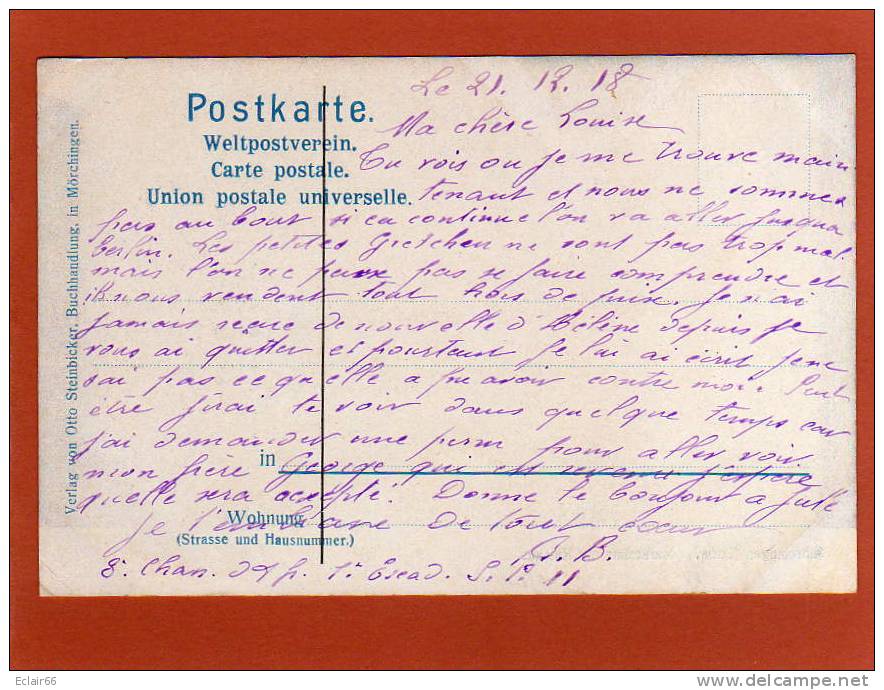 Le 21. 12. 18
Postkarte.
Weltpostverein.
Carte postale.
Union postale universelle.
Ma chère Louise
Tu vois ou je me trouve main-
tenant et nous ne sommes
pas au bout si ca continue l'on va aller jusqua
Berlin. Les petites Gretchen ne sont pas trop mal
mais l'on ne peux pas se faire comprendre et
ils nous vendent tout hors de prix. Je n'ai
jamais recue de nouvelle d'Hélène depuis je
vous ai quitter et pourtant je lui ai écrit je ne
sai pas ce qu'elle a pu avoir contre moi. Peut
être j'irai te voir dans quelque temps car
j'ai demander une perm pour aller voir
mon frère George qui est revenu j'espère
in
quelle sera accepté. Donne le bonjour a
Je t'embrasse de tout cœur
Wohnung
(Strasse und Hausnummer.)
B.
8e Chas. d'Af. 1e Escad. S. P. 11
Verlag von Otto Steinbicker, Buchhandlung, in Mörchingen.
Eclair66
www.delcampe.net